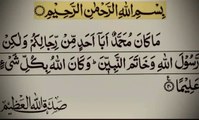 بِسْمِ اللهِ الرَّحْمٰنِ الرَّحِيْمِ
مَا كَانَ مُحَمَّدٌ اَبَآ اَحَدٍ مِّنْ رِّجَالِكُمْ وَلٰكِنْ
رَّسُوْلَ اللهِ وَخَاتَمَ النَّبِيّٖنَ ؕ وَكَانَ اللهُ بِكُلِّ شَیْءٍ
عَلِيْمًا
صدق الله العظيم